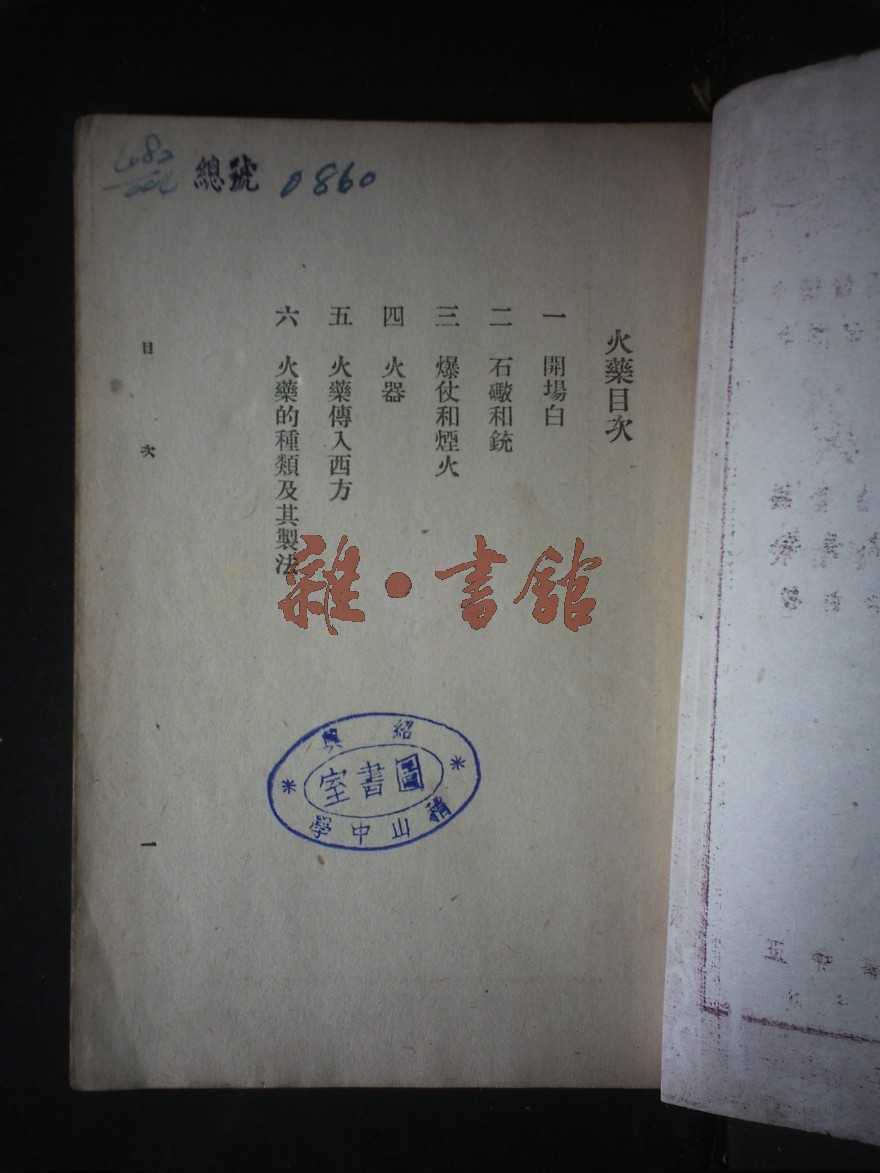 總號 0860
火藥目次
一 開場白
二 石礮和銃
三 爆仗和煙火
四 火器
五 火藥傳入西方
六 火藥的種類及其製法
目次
一
雜·書館
紹興
圖書室
稽山中學